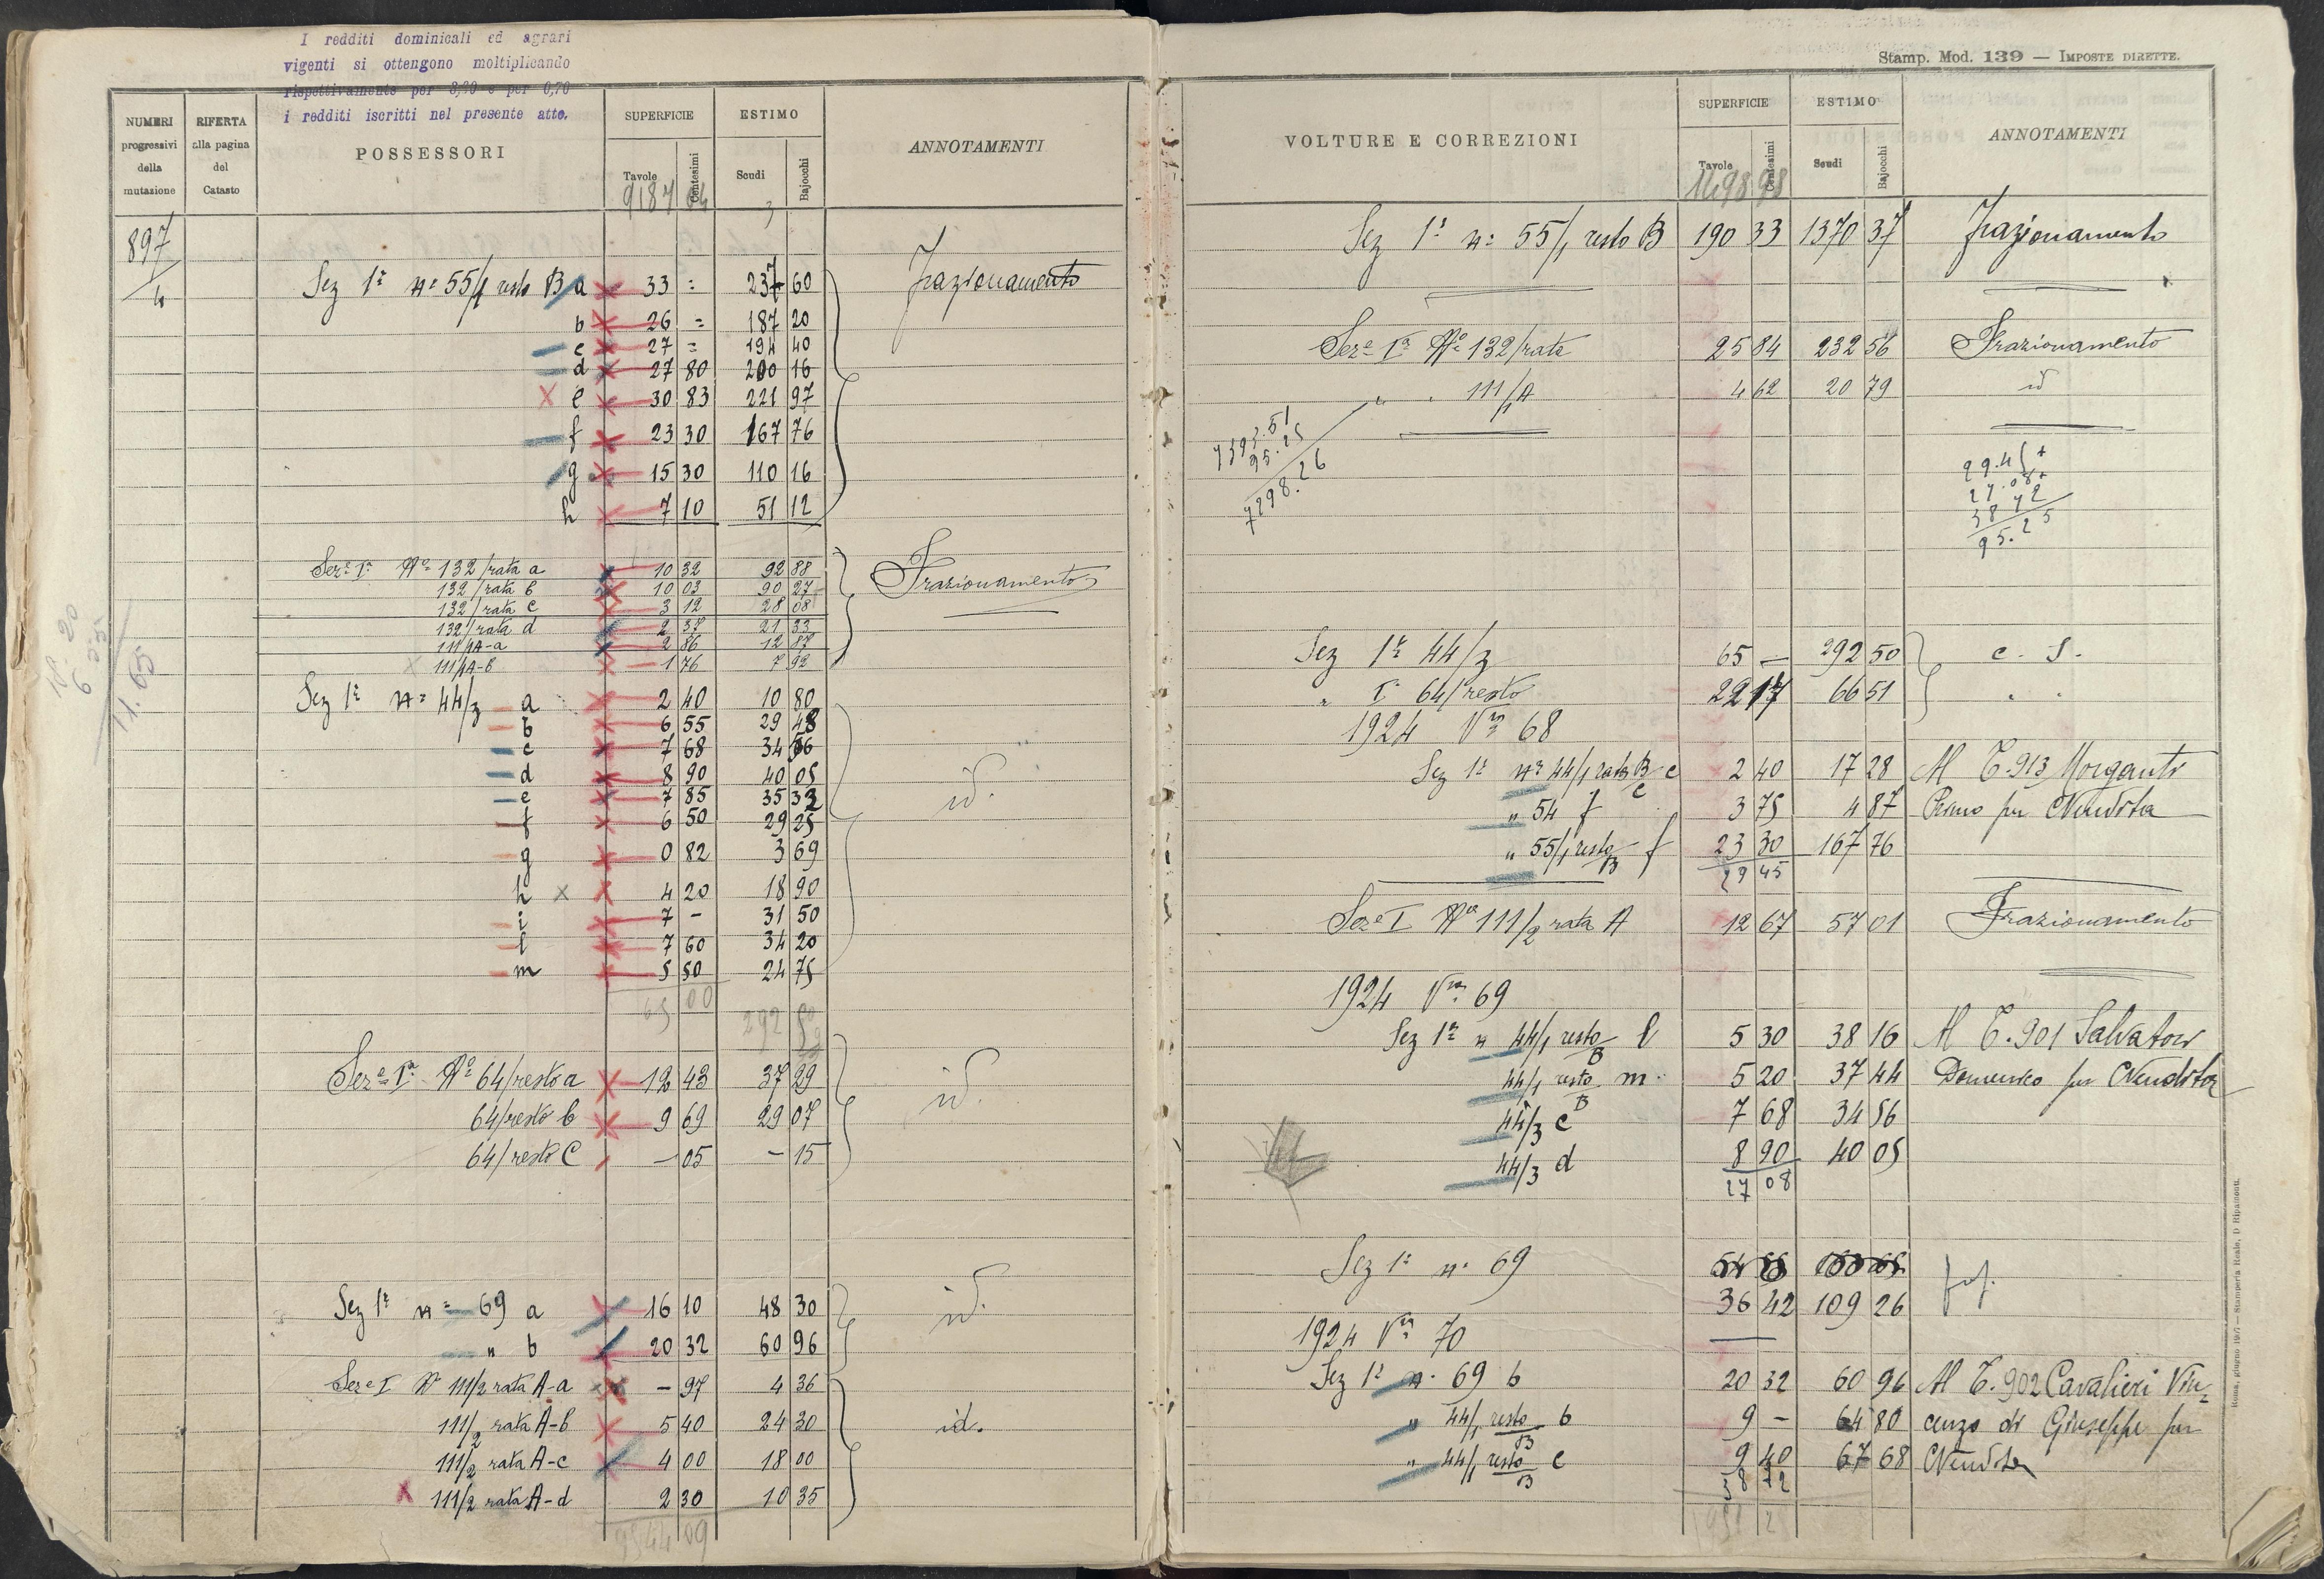 I redditi dominicali ed agrari
vigenti si ottengono moltiplicando
rispettivamente per 3,20 e per 0,70
i redditi iscritti nel presente atto.
NUMERI progressivi della mutazione
RIFERTA alla pagina del Catasto
POSSESSORI
SUPERFICIE
Tavole
Centesimi
ESTIMO
Scudi
Bajocchi
ANNOTAMENTI
9187 04
897/4
Sez 1ª nº 55/1 resto B a 33 = 237 60 Frazionamento
b 26 = 187 20
c 27 = 194 40
d 27 80 200 16
e 30 83 221 97
f 23 30 167 76
g 15 30 110 16
h 7 10 51 12
Sezе Iª Nº 132/rata a 10 32 92 88 Frazionamento
132/rata b 10 03 90 27
132/rata c 3 12 28 08
132/rata d 2 37 21 33
111/1A-a 2 86 12 87
111/1A-b 1 76 7 92
Sez 1ª nº 44/3 a 2 40 10 80
b 6 55 29 48
c 7 68 34 56
d 8 90 40 05
e 7 85 35 33 id.
f 6 50 29 25
g 0 82 3 69
h 4 20 18 90
i 7 - 31 50
l 7 60 34 20
m 5 50 24 75
65 00
292 50
Seze Iª Nº 64/resto a 12 43 37 29 id.
64/resto b 9 69 29 07
64/resto C - 05 - 15
Sez 1ª nº 69 a 16 10 48 30 id.
" b 20 32 60 96
Seze I Nº 111/2 rata A-a - 97 4 36
111/2 rata A-b 5 40 24 30 id.
111/2 rata A-c 4 00 18 00
111/2 rata A-d 2 30 10 35
9344 09
18.20
11.65
Stamp. Mod. 139 — IMPOSTE DIRETTE.
VOLTURE E CORREZIONI
SUPERFICIE
Tavole
Centesimi
ESTIMO
Scudi
Bajocchi
ANNOTAMENTI
1498 98
Sez 1ª nº 55/1 resto B 190 33 1370 37 Frazionamento
Seze Iª Nº 132/rata 25 84 232 56 Frazionamento
" " 111/1A 4 62 20 79 id
7393.51
95.25
7298.26
29.45+
27.08+
38 72
95.25
Sez 1ª 44/3 65 — 292 50 c. s.
" Iª 64/resto 22 17 66 51 " "
1924 Vra 68
Sez 1ª nº 44/1 rata B c 2 40 17 28 Al T. 913 Morganti
" 54 f 3 75 4 87 Primo per Vendita
" 55/1 resto B f 23 30 167 76
29 45
Seze I Nº 111/2 rata A 12 67 57 01 Frazionamento
1924 Vra 69
Sez 1ª n 44/1 resto B l 5 30 38 16 Al T. 901 Salvatori
44/1 resto B m 5 20 37 44 Domenico per Vendita
44/3 c 7 68 34 56
44/3 d 8 90 40 05
27 08
Sez 1ª nº 69
36 42 109 26
1924 Vra 70
Sez 1ª n. 69 b 20 32 60 96 Al T. 902 Cavalieri Vin=
" 44/1 resto B b 9 - 64 80 cenzo di Giuseppe per
" 44/1 resto B c 9 40 67 68 Vendita
38 72
Roma, giugno 1907 — Stamperia Reale, D. Ripamonti.